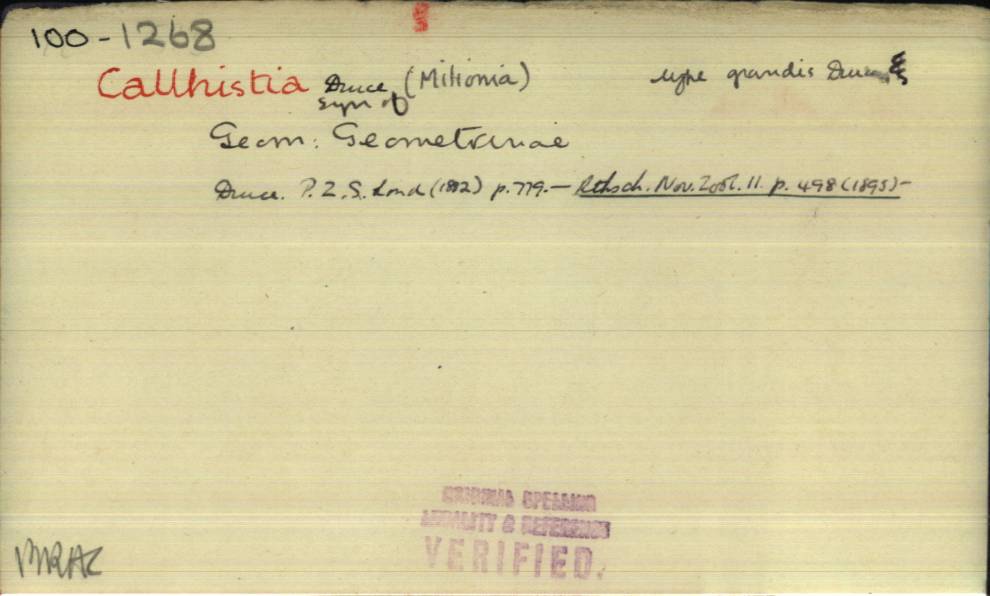 100-1268
Callhistia Druce (Milionia) type grandis Druce
syn of
Geom: Geometrinae
Druce. P.Z.S. Lond (1882) p. 779. — Rthsch. Nov. Zool. II. p. 498 (1895) -
ORIGINAL SPELLING
LOCALITY & REFERENCE
VERIFIED.